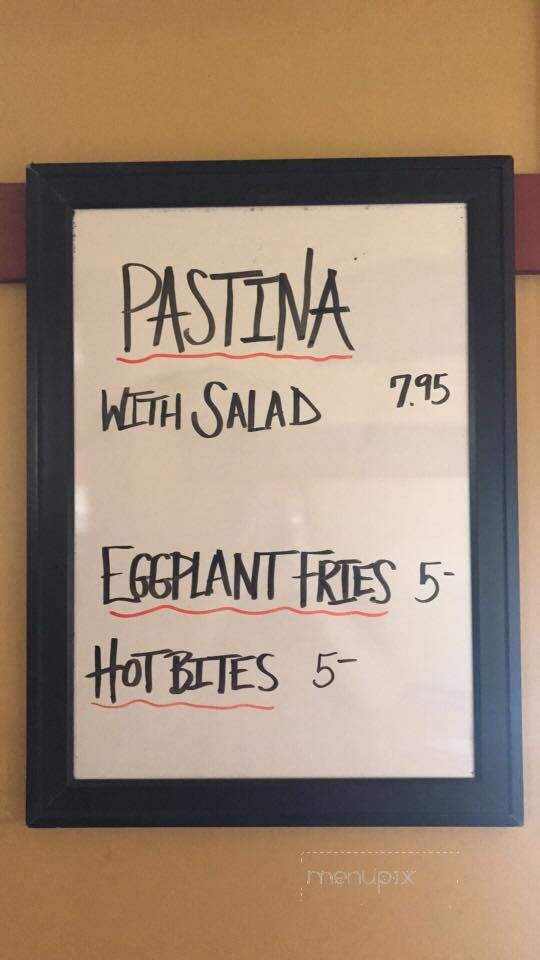 PASTINA
WITH SALAD 7.95
EGGPLANT FRIES 5-
HOT BITES 5-
menupix